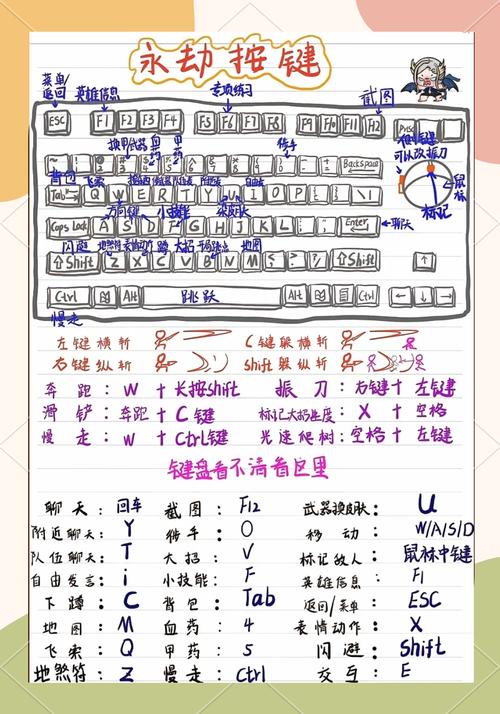 永劫按键
菜单/
返回
英雄信息
专项练习
截图
ESC F1 F2 F3 F4 F5 F6 F7 F8 F9 F10 F11 F12
换甲武器 血药 甲药 徒手
侧键
可以改振刀
Backspace
背包 飞索
Tab Q W E R T Y U I O P
鼠标
标记
方向键 小技能
Caps Lock A S D F G H J K L ; Enter 聊天
闪避 地煞符 蹲 大招 地图
⇧Shift Z X C V B N M ⇧Shift ↑
Ctrl Alt 跳跃 Alt Ctrl ← ↓ →
慢走
左键横斩 C键躲横斩
右键纵斩 shift躲纵斩
奔跑:W+长按shift 振刀:右键+左键
滑铲:奔跑+C键 标记大招进度:X+空格
慢走:W+Ctrl键 光速爬树:空格+左键
键盘看不清看这里
聊天:回车 截图:F12 武器换皮肤:U
附近聊天:Y 徒手:O 移动:W/A/S/D
队伍聊天:T 大招:V 标记敌人:鼠标中键
自由发言:i 小技能:F 英雄信息:F1
下蹲:C 背包:Tab 返回/菜单:ESC
地图:M 血药:4 表情动作:X
飞索:Q 甲药:5 闪避:Shift
地煞符:Z 慢走:Ctrl 交互:E